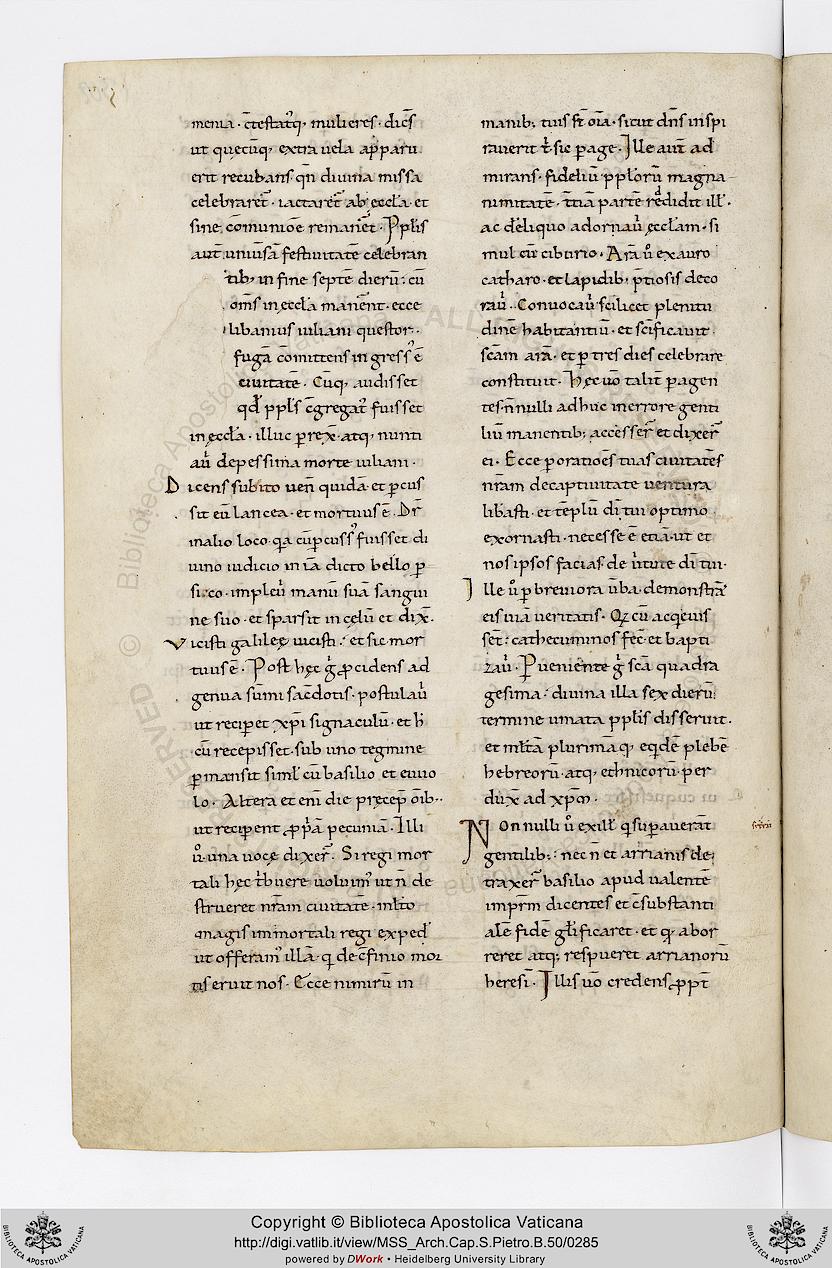 menia · c̄testatꝰq, mulieres · dicēs
ut quecūq, extra uela apparu
erit recubans · qn̄ diuina missa
celebraret᷑ · iactaret᷑ ab ęccła · et
sine cōmunioē remanet᷑ · Ppłis
aut̄ uniusā festiuitatē celebran
tib, in fine septē dierū : cū
om̄s in ęccła manent᷑ · ecce
libanius iuliani questor ·
fugā cōmittens ingressꝰ ē
ciuitatē · Cūq, audisset
qđ ppłs c̄gregatꝰ fuisset
in ęccła · illuc ꝑrex̄ · atq, nunti
aū de pessima morte iuliani ·
Dicens subito uen̄ quidā · et ꝑcus
sit eū lancea · et mortuus ē · Dr̄
in alio loco · qa cū ꝑcussꝰ fuisset di
uino iudicio in iā dicto bello ꝑ
sico · impleū manū suā sangui
ne suo · et sparsit in cęlū et dix̄ ·
Vicisti galileę uicisti : et sic mor
tuus ē · Post hęc ḡ ꝓcidens ad
genua sūmi sac̄dotis · postulaū
ut reciꝑet xp̄i signaculū · et h̄
cū recepisset · sub uno tegmine
ꝑmansit simł cū basilio et euuo
lo · Altera et enī die pręcep̄ oīb ·
ut reciꝑent ꝓpā pecuniā · Illi
u̇ · una uocę dixer̄ · Si regi mor
tali hęc t̄buere uoluimꝰ ut n̄ de
strueret nr̄am ciuitatē · młto
magis immortali regi exped᷑
ut offeramꝰ illā · q de c̄finio mor
tis eruit nos · Ecce nimirū in
manib; tuis st̄ oīa · sicut dn̄s inspi
rauerit t̄ · sic ꝑage · Ille aut̄ ad
mirans · fideliū ppłorū magna
nimitatē · t̄tiā partē reddidit ill᷑ ·
ac deliquo adornaū ęccłam · si
mul cū ciburio · Arā u̇ ex auro
catharo · et lapidib, p̄tiosis deco
raū · Conuocaū scilicet plenitu
dinē habitantiū · et sc̄ificauit
sc̄am arā · et ꝑ tres dies celebrare
constituit · Hęc uō talit̄ ꝑagen
tes · n̄nulli adhuc in errore genti
liū manentib; accesser̄ et dixer̄
ei · Ecce ꝑ oratioēs tuas ciuitatēs
nr̄am de captiuitate uentura
lib̄asti · et tēplū dī tui optimo
exornasti · necesse ē etiā ut et
nos ipsos facias de u̇tute dī tui ·
Ille u̇ ꝑ breuiora ūba demonstrā
eis uiā ueritatis · Q; cū acq̇euis
sēt : cathecuminos fec̄ · et bapti
zaū · Pueniente ḡ sc̄a quadra
gesima : diuina illa sex dierū
termine umata ppłis disseruit ·
et młtā plurimāq, eq̇dē plebē
hebreorū · atq, ethnicorū · per
dux̄ ad xp̄m ·
Non nulli u̇ exill᷑ q superauerāt
gentilib; : nec n̄ et arrianis de
traxer̄ basilio apud ualentē
imprm dicentes et c̄substanti
alē fidē głificaret · et q abor
reret atq; respueret arrianorū
heresī · Illis uō credens ꝓpt̄
Copyright © Biblioteca Apostolica Vaticana
http://digi.vatlib.it/view/MSS_Arch.Cap.S.Pietro.B.50/0285
powered by DWork • Heidelberg University Library